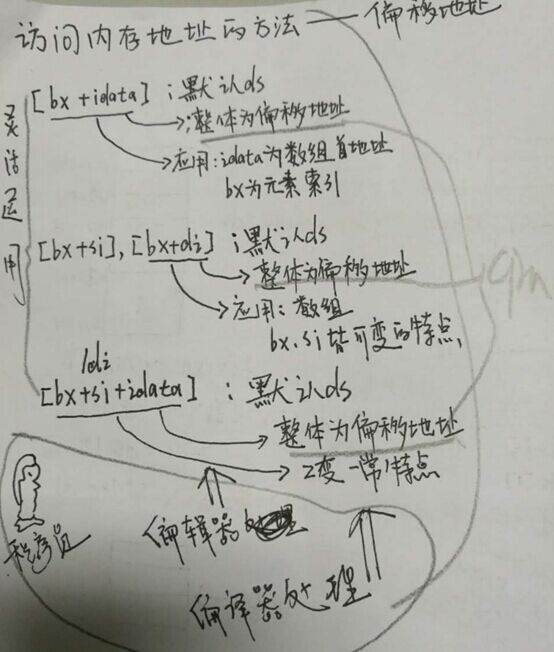 访问内存地址的方法——偏移地址
灵活运用
[bx+idata] ;默认ds
;整体为偏移地址
应用:idata为数组首地址
bx为元素索引
[bx+si],[bx+di] ;默认ds
整体为偏移地址
应用:数组
bx.si皆可变的特点,
/di
[bx+si+idata] :默认ds
整体为偏移地址
2变一常特点
程序员
编辑器处理
编译器处理